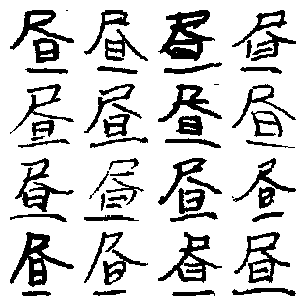 昼昼昼昼
昼昼昼昼
昼昼昼昼
昼昼昼昼